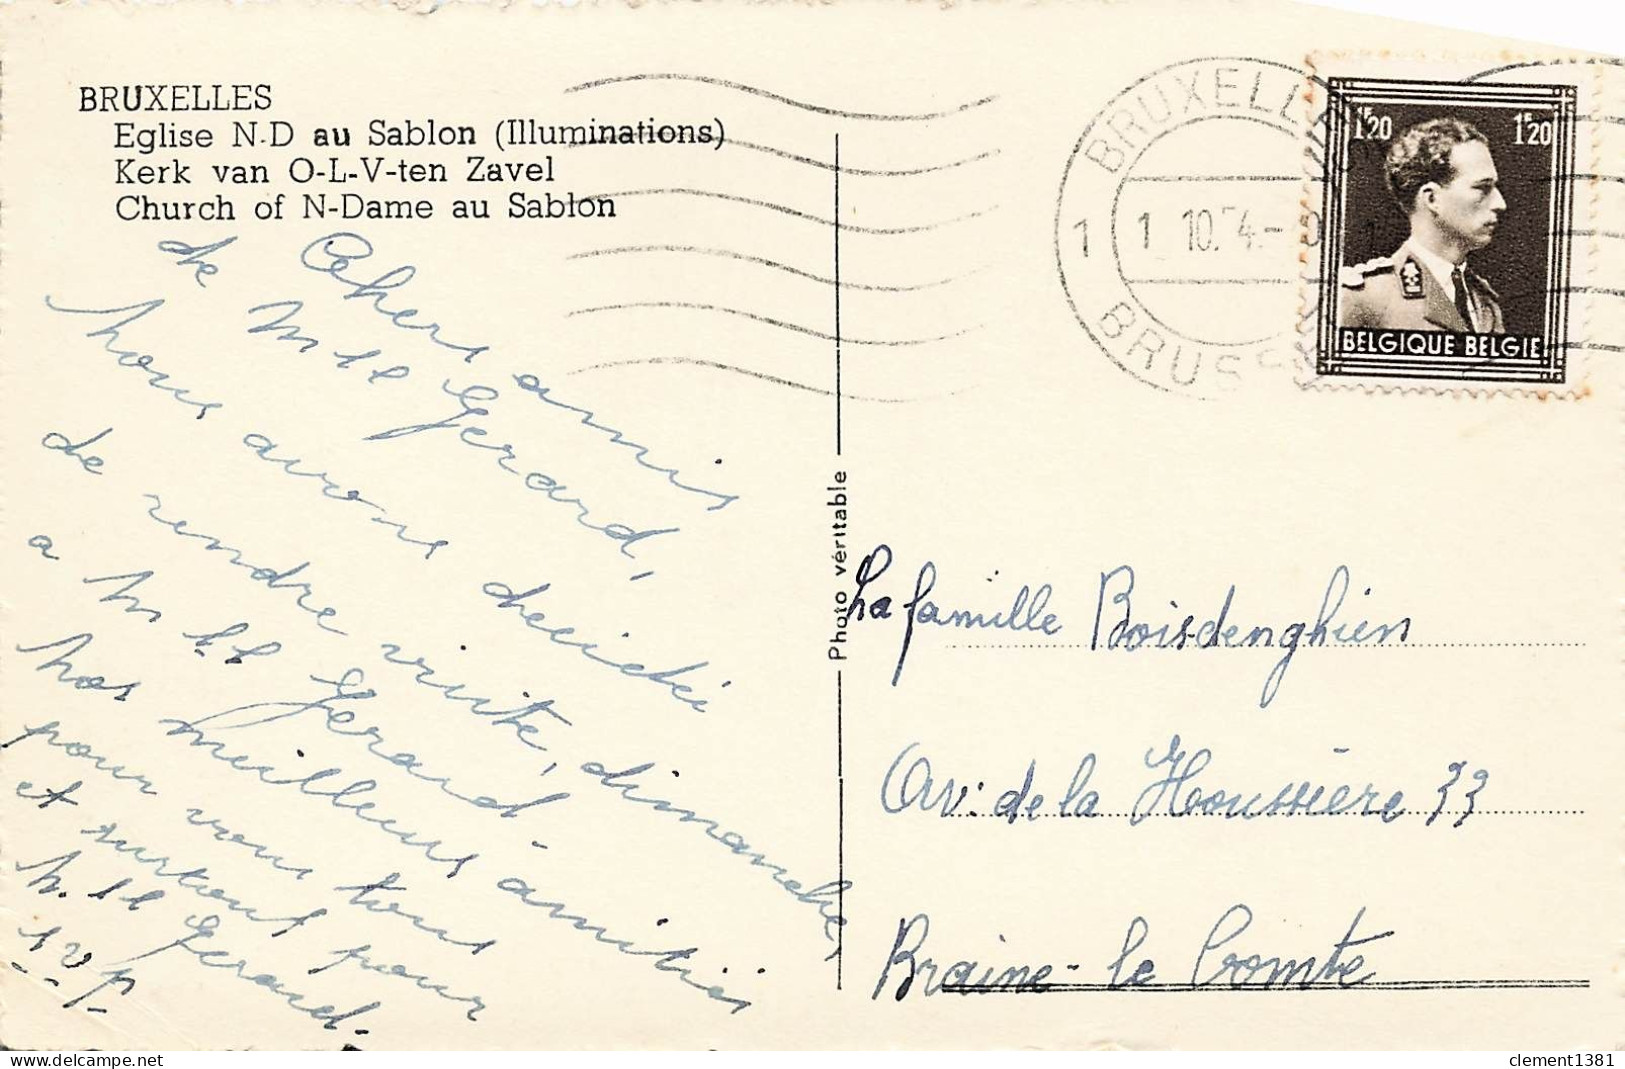 BRUXELLES
Eglise N-D au Sablon (Illuminations)
Kerk van O-L-V-ten Zavel
Church of N-Dame au Sablon
Chers amis
de Mlle Gerard,
nous avons décidé
de rendre visite, dimanche,
a Mlle Gerard.
nos meilleurs amitiés
pour vous tous
et surtout pour
M.lle Gerard.
s.v.p.
Photo véritable
BRUXELLES
1 1 10. 4.-
BRUSS
1F20 1F20
BELGIQUE BELGIE
La famille Boisdenghien
Av: de la Houssière 33
Braine-le Comte
clement1381